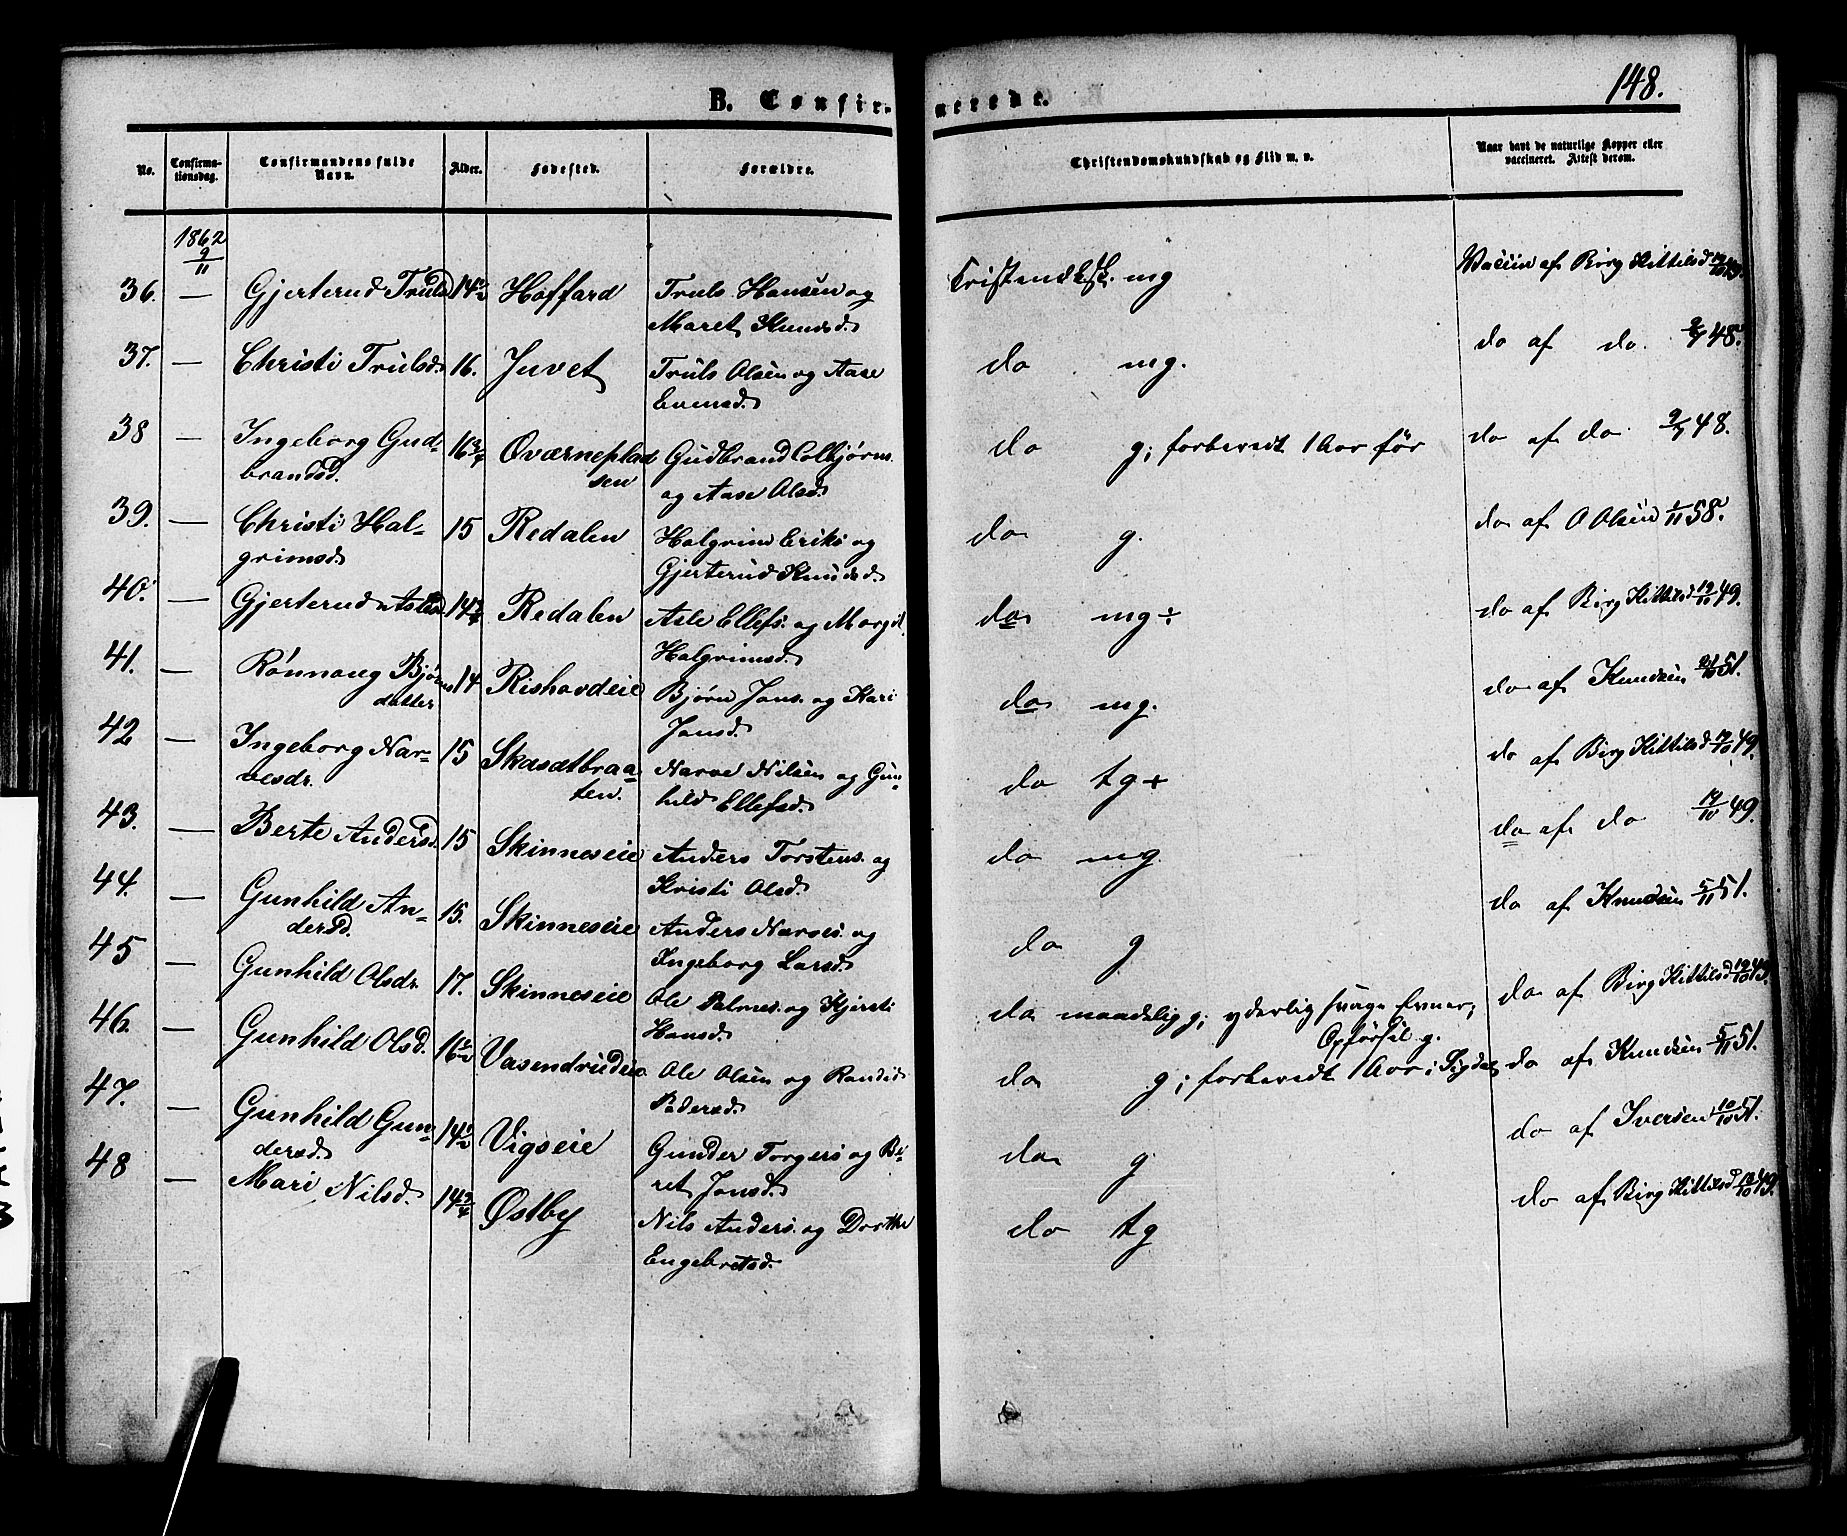 148.
B. Confirmerede.
No.
Confirmationsdag.
Confirmandens fulde Navn.
Alder.
Fødested.
Forældre.
Christendomskundskab og Flid m. v.
Naar havt de naturlige Kopper eller vaccineret. Attest derom.
1862
9/11
36. — Gjerterud Trulsd. 14½ Hoffard Truls Hansen og Maret Knudsd. Kristendksk. mg Vaccin af Birg Kittilsd 49.
37. — Christi Trulsd. 16. Juvet Truls Olsen og Aase Evensd. do mg. do af do. 48.
38 — Ingeborg Gudbrandsd. 16¾ Oværnepladsen Gudbrand Colbjørns. og Aase Olsd. do g; forberedt 1 Aar før do af do 48.
39. — Christi Halgrimsd. 15 Redalen Halgrim Eriks og Gjerterud Knudsd. do g. do af O Olsen 1/11 58.
40. — Gjerterud Aslesd 14¾ Redalen Asle Ellefs. og Margit Halgrimsd. do mg÷ do af Birg Kittilsd 49.
41. — Rønnaug Bjørnsdatter 14 Rishovdeie Bjørn Jons. og Kari Jonsd. do mg. do af Knudsen 51.
42 — Ingeborg Narvesdr. 15 Skasætbraaten. Narve Nilsen og Gunhild Ellefsd. do tg+ do af Birg Kittilsd 49.
43. — Berte Andersd 15 Skinneseie Anders Torstens. og Kristi Olsd. do mg. do af do 49.
44. — Gunhild Andersd. 15. Skinneseie Anders Narves. og Ingeborg Larsd. do g do af Knudsen 5/11 51.
45 — Gunhild Olsdr. 17. Skinneseie Ole Palmes. og Kjersti Hansd. do maadelig g; yderlig svage Evner; Opførsel g. do af Birg Kittilsd 49.
46. — Gunhild Olsd. 16½ Vasendrudeie Ole Olsen og Randi Pedersd. do g; forberedt 1 Aar i Sigdal do af Knudsen 5/11 51.
47. — Gunhild Gundersd. 14½ Vigseie Gunder Torgers og Beret Jonsd. do g do af Iversen 10/10 51.
48 — Mari Nilsd. 14¾ Østby Nils Anders. og Dorthe Engebretsd. do tg do af Birg Kittilsd 49.